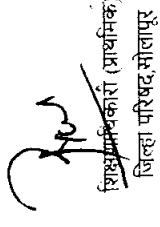 शिक्षणाधिकारी (प्राथमिक)
जिल्हा परिषद,सोलापूर